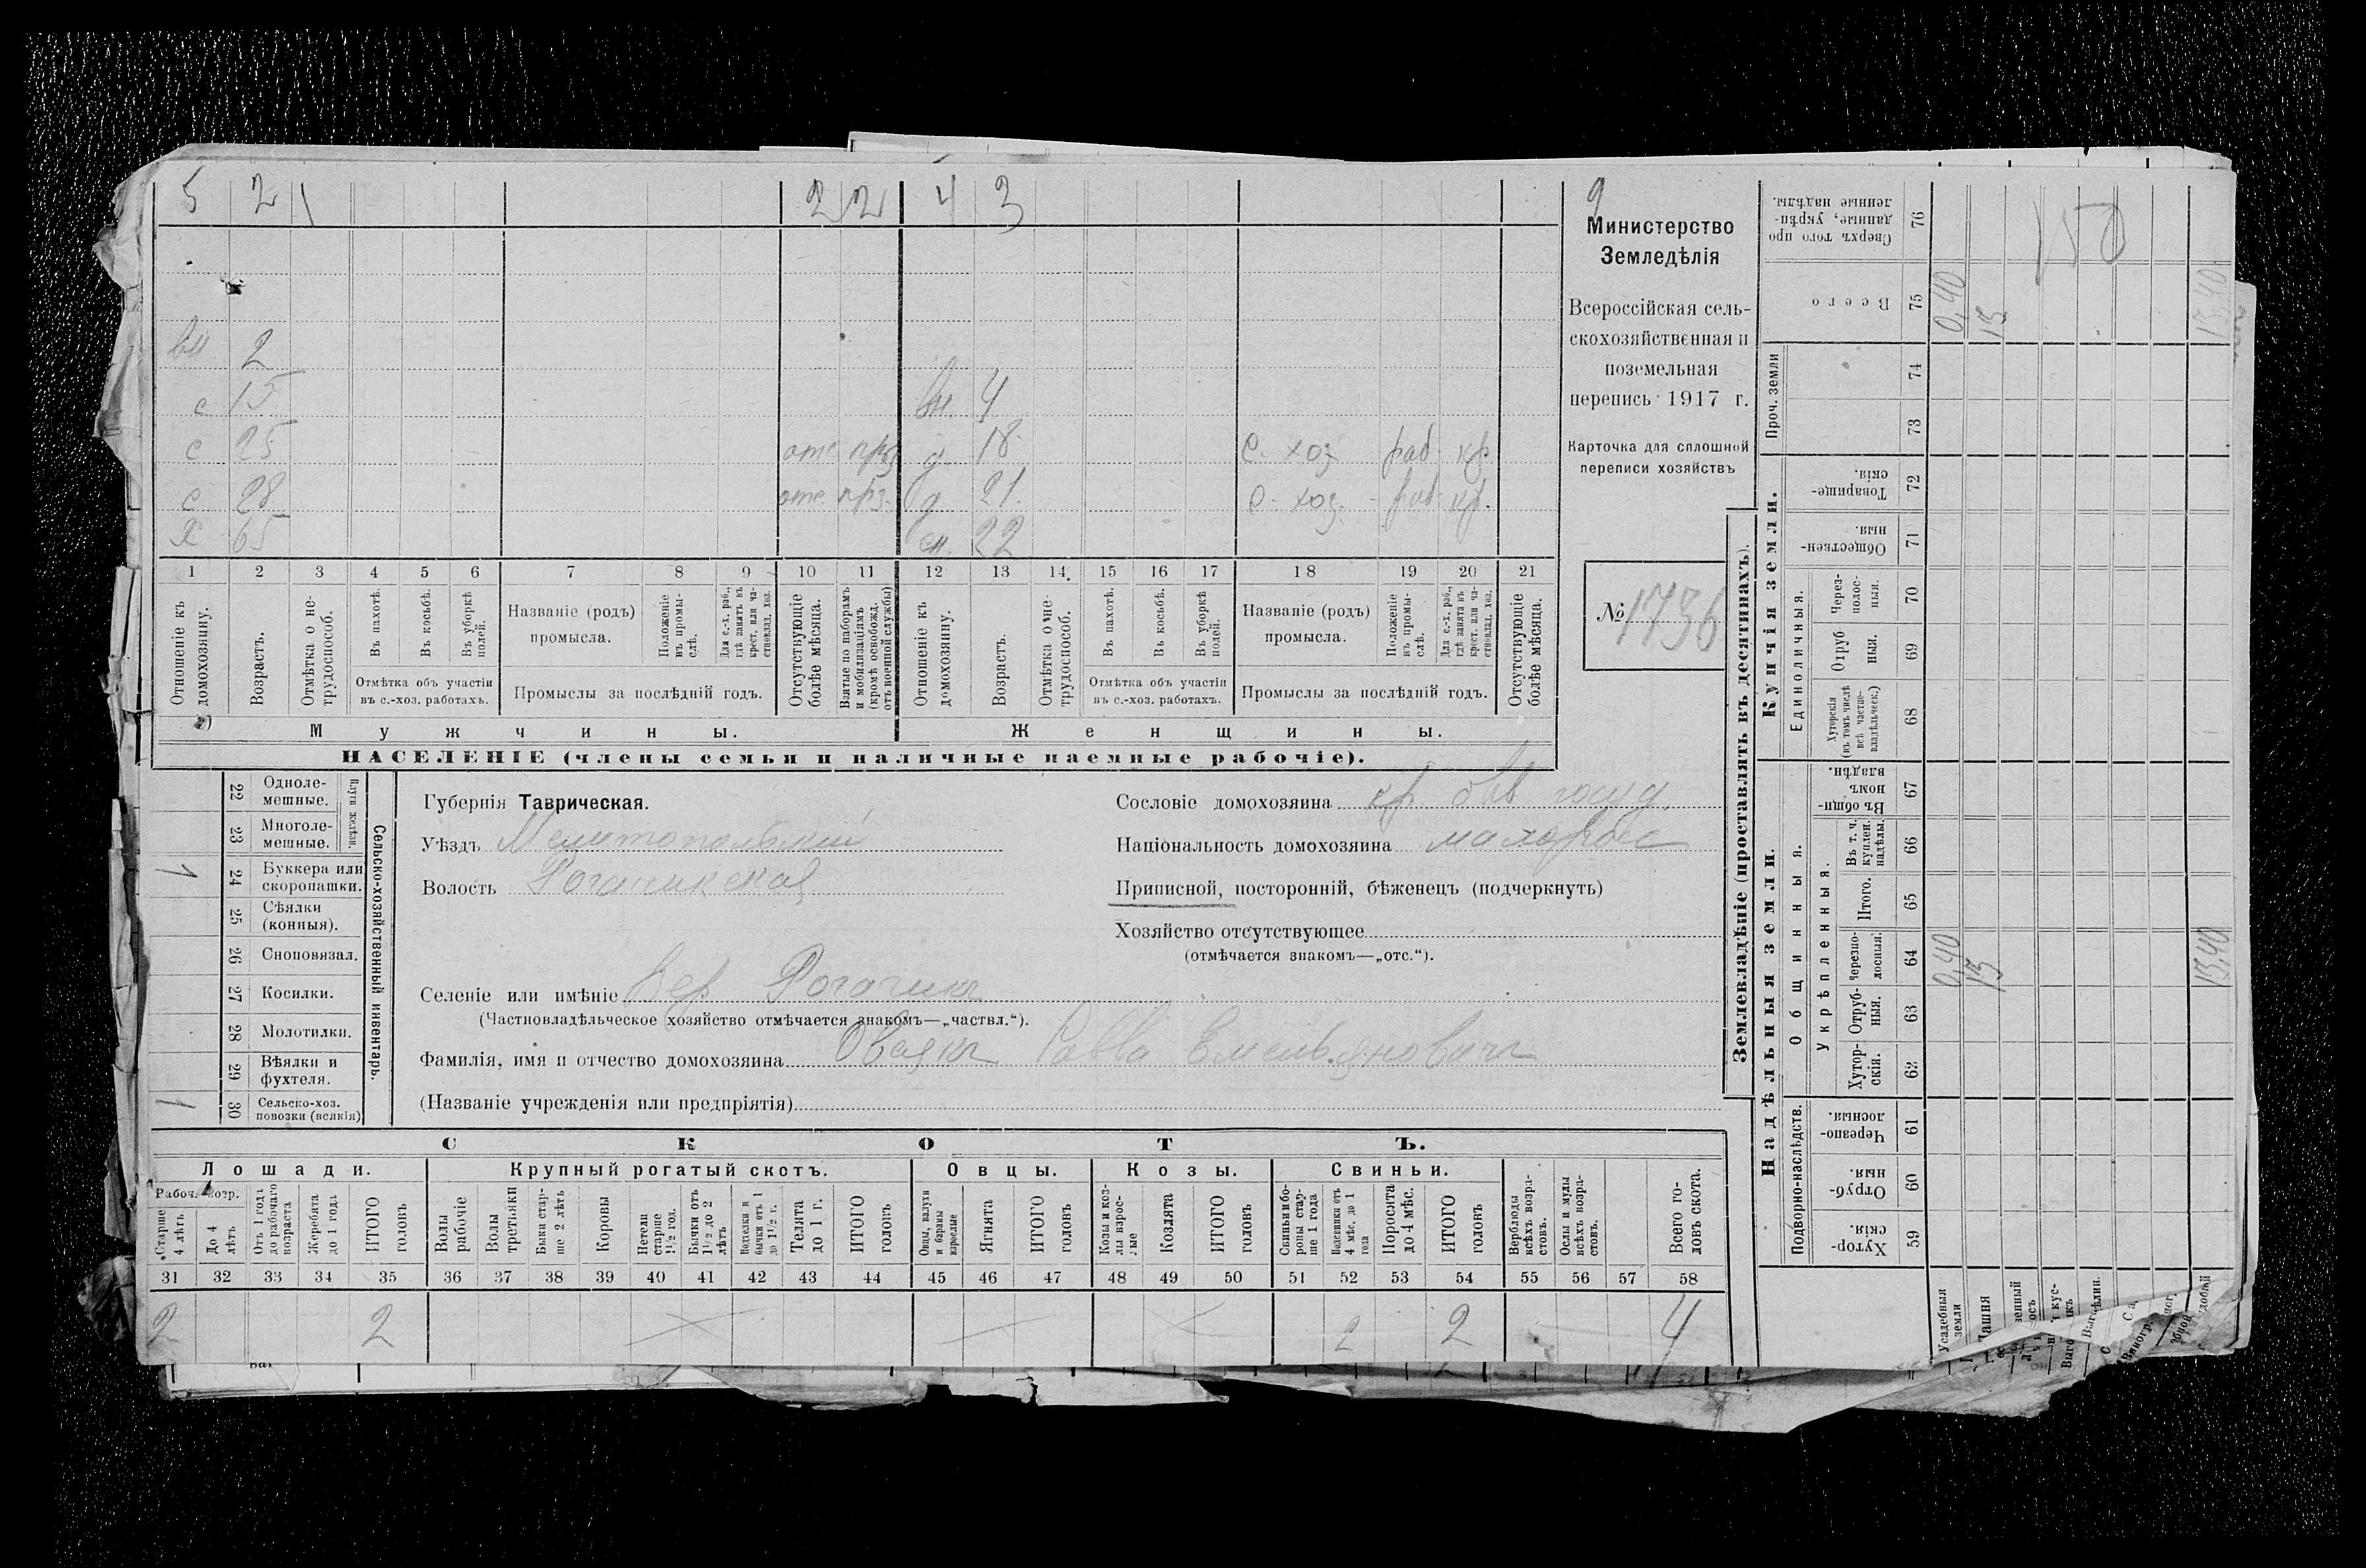 5 2 \ 2 2 4 3
вн 2
с 15 вн. 4
с 25 отс прз д 18 С. хоз раб кр
с 28 отс. прз. д 21. С. хоз. раб кр.
Х 65 сн. 22
1 2 3 4 5 6 7 8 9 10 11 12 13 14. 15 16 17 18 19 20 21
Отношеніе къ домохозяину.
Возрастъ.
Отмѣтка о нетрудоспособ.
Въ пахотѣ.
Въ косьбѣ.
Въ уборкѣ полей.
Отмѣтка объ участіи
въ с.-хоз. работахъ.
Названіе (родъ)
промысла.
Положеніе въ промыслѣ.
Для с.-х. раб., гдѣ занятъ въ крест. или частновлад. хоз.
Промыслы за послѣдній годъ.
Отсутствующіе болѣе мѣсяца.
Взятые по наборамъ и мобилизаціямъ (кромѣ освобожд. отъ военной службы)
Отношеніе къ домохозяину.
Возрастъ.
Отмѣтка о нетрудоспособ.
Въ пахотѣ.
Въ косьбѣ.
Въ уборкѣ полей.
Отмѣтка объ участіи
въ с.-хоз. работахъ.
Названіе (родъ)
промысла.
Положеніе въ промыслѣ.
Для с.-х. раб., гдѣ занята въ крест. или частновлад. хоз.
Промыслы за послѣдній годъ.
Отсутствующіе болѣе мѣсяца.
Мужчины. Женщины.
НАСЕЛЕНІЕ (члены семьи и наличные наемные рабочіе).
2
Министерство
Земледѣлія
Всероссійская сель-
скохозяйственная и
поземельная
перепись 1917 г.
Карточка для сплошной
переписи хозяйствъ
№ 1736
22 Одноле-
мешные.
23 Многоле-
мешные.
Плуги желѣзн.
1 24 Буккера или
скоропашки.
25 Сѣялки
(конныя).
26 Сноповязал.
27 Косилки.
28 Молотилки.
29 Вѣялки и
фухтеля.
1 30 Сельско-хоз.
повозки (всякія)
Сельско-хозяйственный инвентарь.
Губернія Таврическая.
Уѣздъ Мелитопольскій
Волость Рогачикская
Селеніе или имѣніе Вер Рогачикъ
(Частновладѣльческое хозяйство отмѣчается знакомъ—„частвл.“).
Фамилія, имя и отчество домохозяина Савва Емельяновичъ
(Названіе учрежденія или предпріятія)
Сословіе домохозяина кр быв госуд.
Національность домохозяина малоросс
Приписной, посторонній, бѣженецъ (подчеркнуть)
Хозяйство отсутствующее
(отмѣчается знакомъ—„отс.“).
СКОТЪ.
Лошади. Крупный рогатый скотъ. Овцы. Козы. Свиньи.
Рабоч. возр.
Старше 4 лѣтъ.
До 4 лѣтъ
Отъ 1 года до рабочаго возраста
Жеребята до 1 года
ИТОГО головъ
Волы рабочіе
Волы третьяки
Быки старше 2 лѣтъ
Коровы
Нетели старше 1½ год.
Бычки отъ 1½ до 2 лѣтъ
Подтелки и бычки отъ 1 до 1½ г.
Телята до 1 г.
ИТОГО головъ
Овцы, валухи и бараны взрослые
Ягнята
ИТОГО головъ
Козы и козлы взрослые
Козлята
ИТОГО головъ
Свиньи и боровы старше 1 года
Подсвинки отъ 4 мѣс. до 1 года
Поросята до 4 мѣс.
ИТОГО головъ
Верблюды всѣхъ возрастовъ.
Ослы и мулы всѣхъ возрастовъ.
Всего головъ скота.
31 32 33 34 35 36 37 38 39 40 41 42 43 44 45 46 47 48 49 50 51 52 53 54 55 56 57 58
2 2 2 2 4
Землевладѣніе (проставлять въ десятинахъ).
Надѣльныя земли. Купчія земли. Проч. земли
Подворно-наслѣдств.
Общинныя.
Укрѣпленныя.
Единоличныя.
59 Хутор-
скія.
60 Отруб-
ныя.
61 Черезпо-
лосныя.
62 Хутор-
скія.
63 Отруб-
ныя.
64 Черезпо-
лосныя.
65 Итого.
66 Въ т. ч. куплен. надѣлы.
67 Въ общи-
номъ
владѣн.
68 Хуторскія (въ томъ числѣ всѣ частновладѣльческ.)
69 Отруб
ныя.
70 Через-
полос-
ныя.
71 Обществен-
ныя.
72 Товарище-
скія.
73 74
75 Всего
76 Сверхъ того про
данные, укрѣп-
ленные надѣлы.
Усадебныя земли
Пашня
0,40 0,40
15 15
13,40 13,40
150